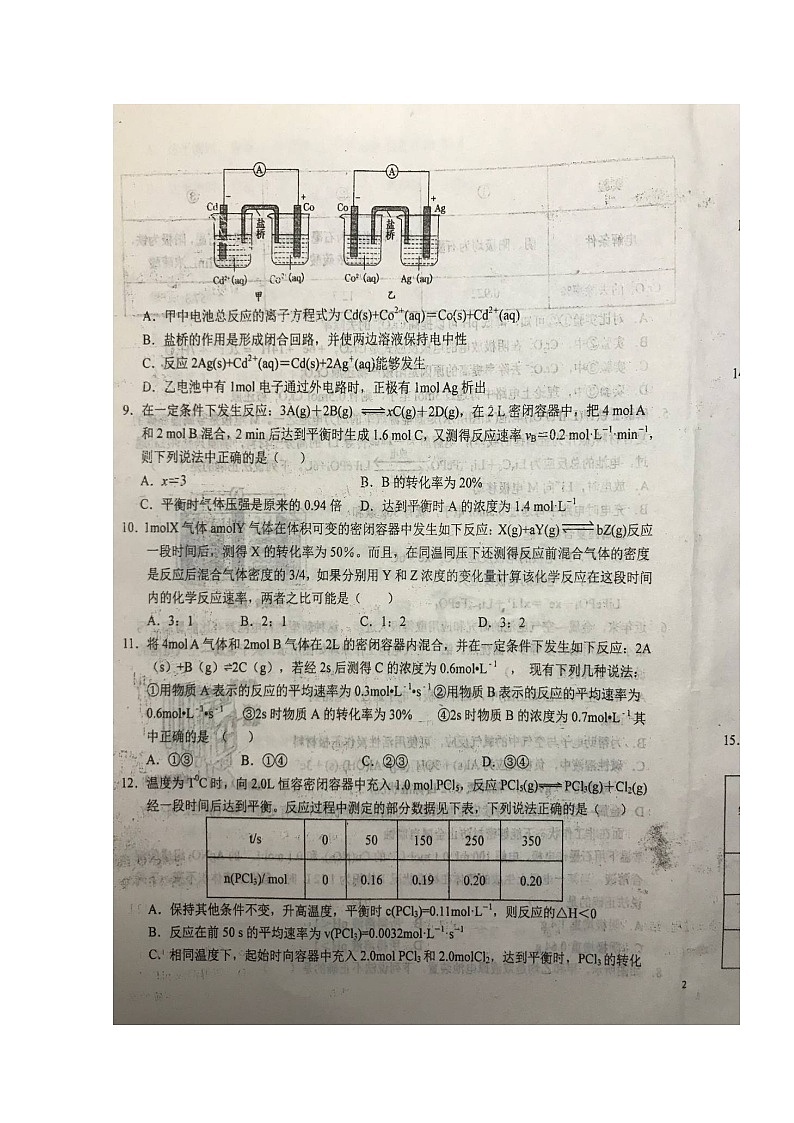 A A
- + - +
Cd Co Co Ag
盐桥 盐桥
Cd²⁺(aq) Co²⁺(aq) Co²⁺(aq) Ag⁺(aq)
甲 乙
A．甲中电池总反应的离子方程式为 Cd(s)+Co²⁺(aq)＝Co(s)+Cd²⁺(aq)
B．盐桥的作用是形成闭合回路，并使两边溶液保持电中性
C．反应 2Ag(s)+Cd²⁺(aq)＝Cd(s)+2Ag⁺(aq)能够发生
D．乙电池中有 1mol 电子通过外电路时，正极有 1mol Ag 析出
9．在一定条件下发生反应：3A(g)＋2B(g) ⇌xC(g)＋2D(g)，在 2 L 密闭容器中，把 4 mol A
和 2 mol B 混合，2 min 后达到平衡时生成 1.6 mol C，又测得反应速率 vB＝0.2 mol·L⁻¹·min⁻¹，
则下列说法中正确的是（ ）
A．x＝3 B．B 的转化率为 20%
C．平衡时气体压强是原来的 0.94 倍 D．达到平衡时 A 的浓度为 1.4 mol·L⁻¹
10．1molX 气体 amolY 气体在体积可变的密闭容器中发生如下反应：X(g)+aY(g)⇌bZ(g)反应
一段时间后，测得 X 的转化率为 50％。而且，在同温同压下还测得反应前混合气体的密度
是反应后混合气体密度的 3/4，如果分别用 Y 和 Z 浓度的变化量计算该化学反应在这段时间
内的化学反应速率，两者之比可能是（ ）
A．3：1 B．2：1 C．1：2 D．3：2
11．将 4mol A 气体和 2mol B 气体在 2L 的密闭容器内混合，并在一定条件下发生如下反应：2A
（s）+B（g）⇌2C（g），若经 2s 后测得 C 的浓度为 0.6mol•L⁻¹ ， 现有下列几种说法：
①用物质 A 表示的反应的平均速率为 0.3mol•L⁻¹•s⁻¹ ②用物质 B 表示的反应的平均速率为
0.6mol•L⁻¹•s⁻¹ ③2s 时物质 A 的转化率为 30% ④2s 时物质 B 的浓度为 0.7mol•L⁻¹ 其
中正确的是 （ ）
A．①③ B．①④ C．②③ D．③④
12．温度为 T⁰C 时，向 2.0L 恒容密闭容器中充入 1.0 mol PCl₅，反应 PCl₅(g)⇌PCl₃(g)＋Cl₂(g)
经一段时间后达到平衡。反应过程中测定的部分数据见下表，下列说法正确的是（ ）
t/s 0 50 150 250 350
n(PCl₃)/ mol 0 0.16 0.19 0.20 0.20
A．保持其他条件不变，升高温度，平衡时 c(PCl₃)=0.11mol·L⁻¹，则反应的△H＜0
B．反应在前 50 s 的平均速率为 v(PCl₃)=0.0032mol·L⁻¹·s⁻¹
C．相同温度下，起始时向容器中充入 2.0mol PCl₃ 和 2.0molCl₂，达到平衡时，PCl₃ 的转化
2
15.